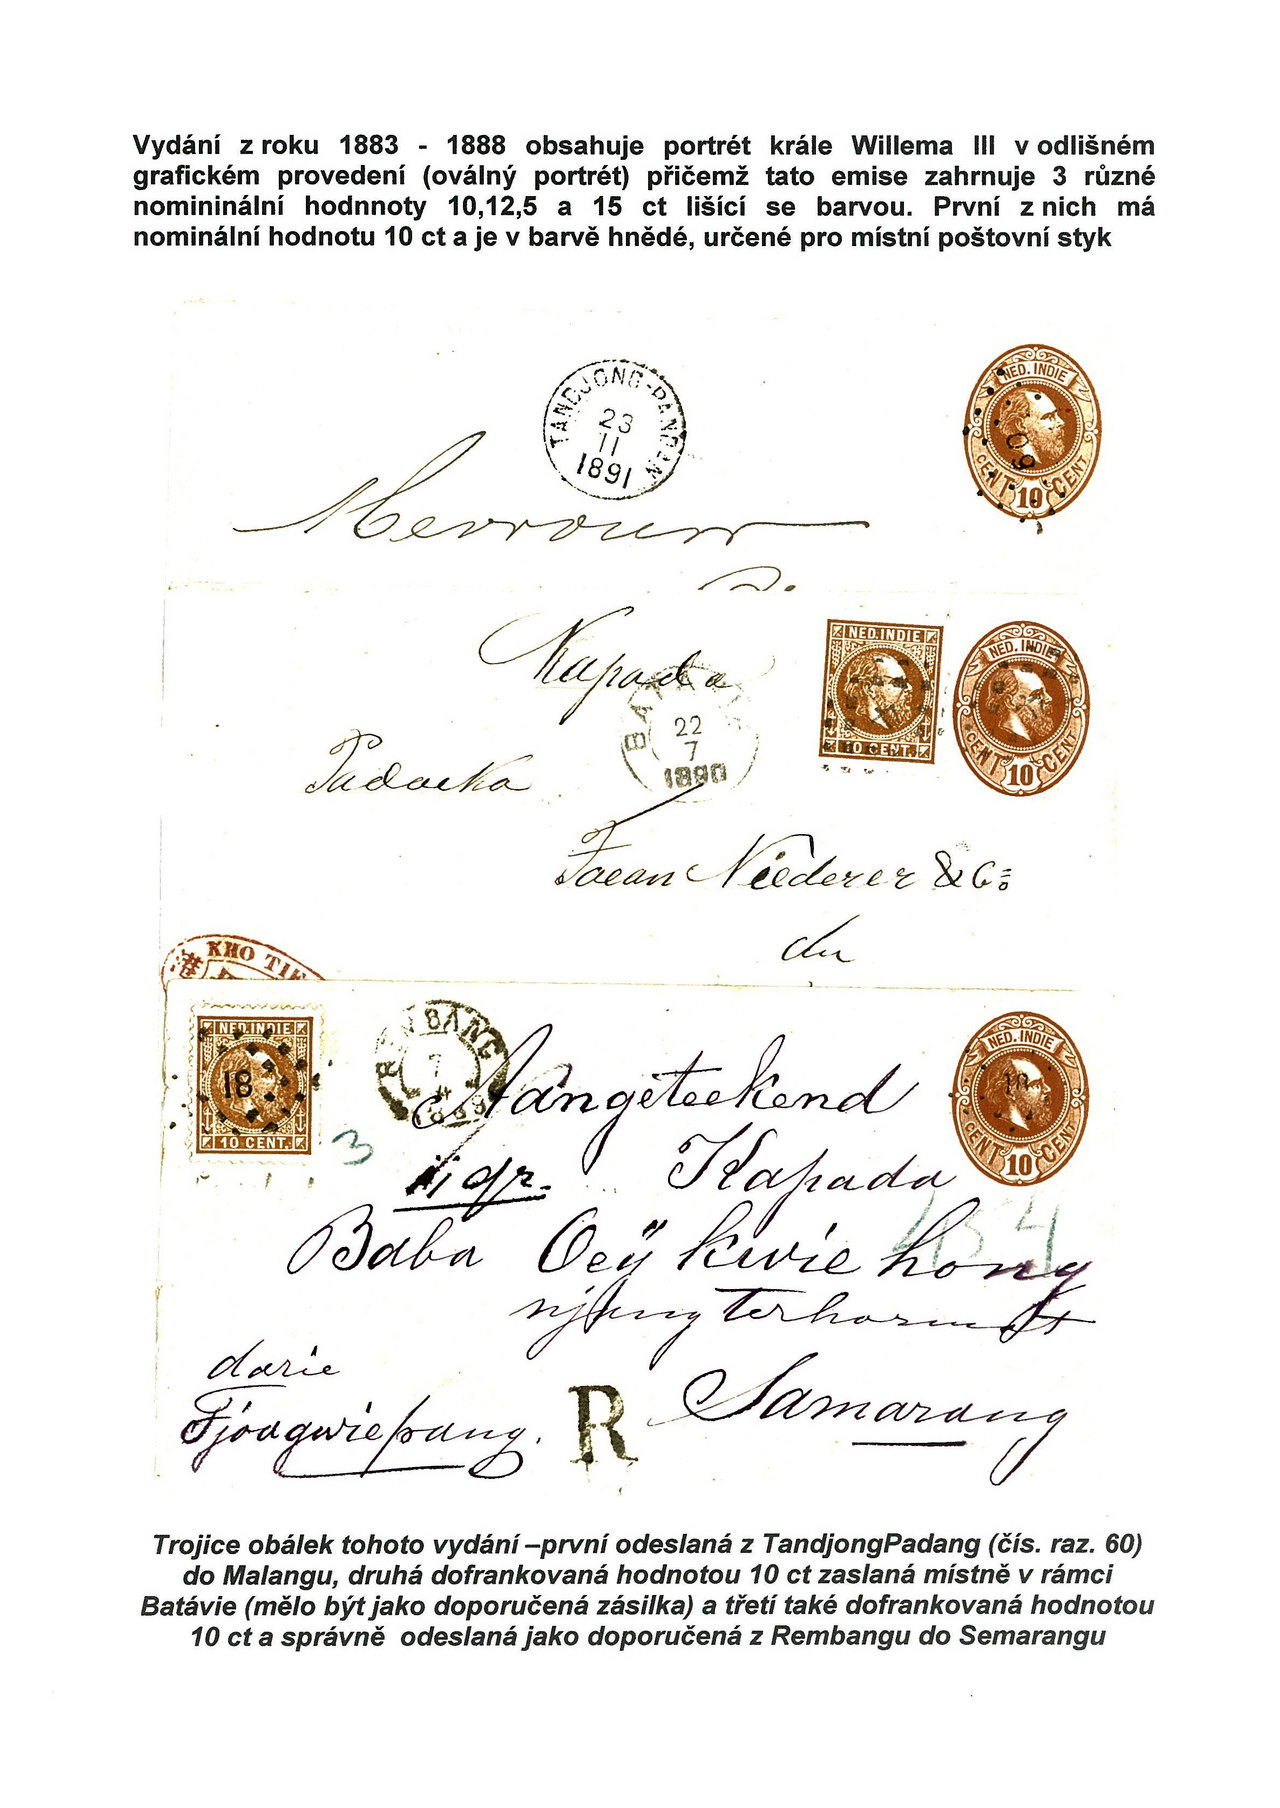 Vydání z roku 1883 - 1888 obsahuje portrét krále Willema III v odlišném
grafickém provedení (oválný portrét) přičemž tato emise zahrnuje 3 různé
nomininální hodnnoty 10,12,5 a 15 ct lišící se barvou. První z nich má
nominální hodnotu 10 ct a je v barvě hnědé, určené pro místní poštovní styk
NED. INDIE
60
CENT 10 CENT
TANDJONG-PANDAN
23
11
1891
Mevrouw
NED. INDIE
10 CENT.
NED. INDIE
CENT 10 CENT
Kapada
BATA
22
7
1890
Padoeka
Toean Niederer & Co
KHO TIE
NED. INDIE
18
10 CENT.
REMBANG
7
4
NED. INDIE
18
CENT 10 CENT
Aangeteekend
3
Kapada
454
Baba Oeij kwie hong
darie
R
Samarang
Trojice obálek tohoto vydání –první odeslaná z TandjongPadang (čís. raz. 60)
do Malangu, druhá dofrankovaná hodnotou 10 ct zaslaná místně v rámci
Batávie (mělo být jako doporučená zásilka) a třetí také dofrankovaná hodnotou
10 ct a správně odeslaná jako doporučená z Rembangu do Semarangu